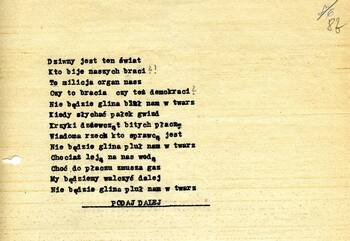 86
Dziwny jest ten świat
Kto bije naszych braci ?!
To milicja organ nasz
Czy to bracia czy też demokraci?
Nie będzie glina nam w twarz
Kiedy słychać pałek gwizd
Krzyki dziewcząt bitych płaczą
Wiadoma rzecz kto sprawcą jest
Nie będzie glina pluł nam w twarz
Chociaż leją na nas wodą
Choć do płaczu zmusza gaz
My będziemy walczyć dalej
Nie będzie glina pluł nam w twarz
PODAJ DALEJ